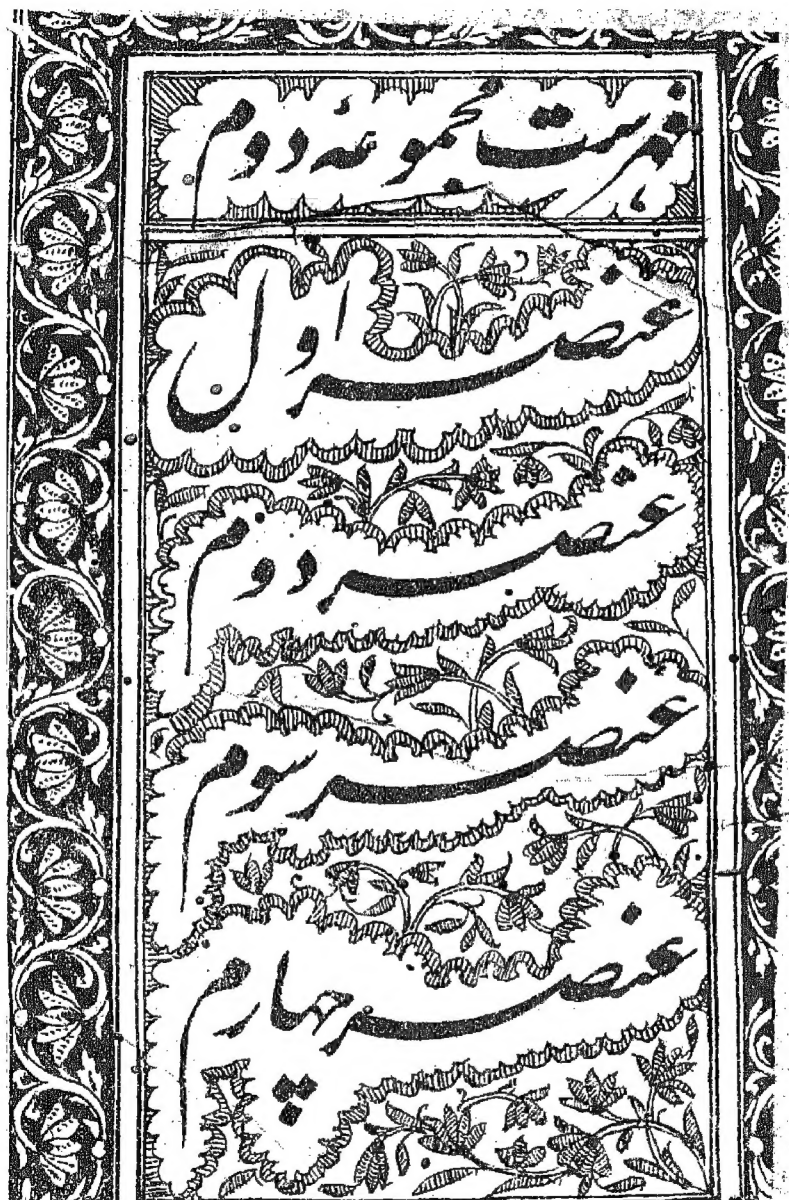 فهرست مجموعهٔ دوم
عنصر اول
عنصر دوم
عنصر سوم
عنصر چهارم